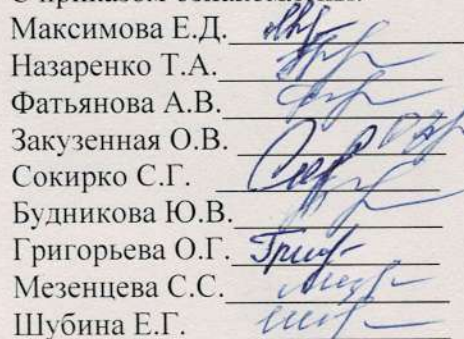 С приказом ознакомлены:
Максимова Е.Д.
Назаренко Т.А.
Фатьянова А.В.
Закузенная О.В.
Сокирко С.Г.
Будникова Ю.В.
Григорьева О.Г.
Мезенцева С.С.
Шубина Е.Г.